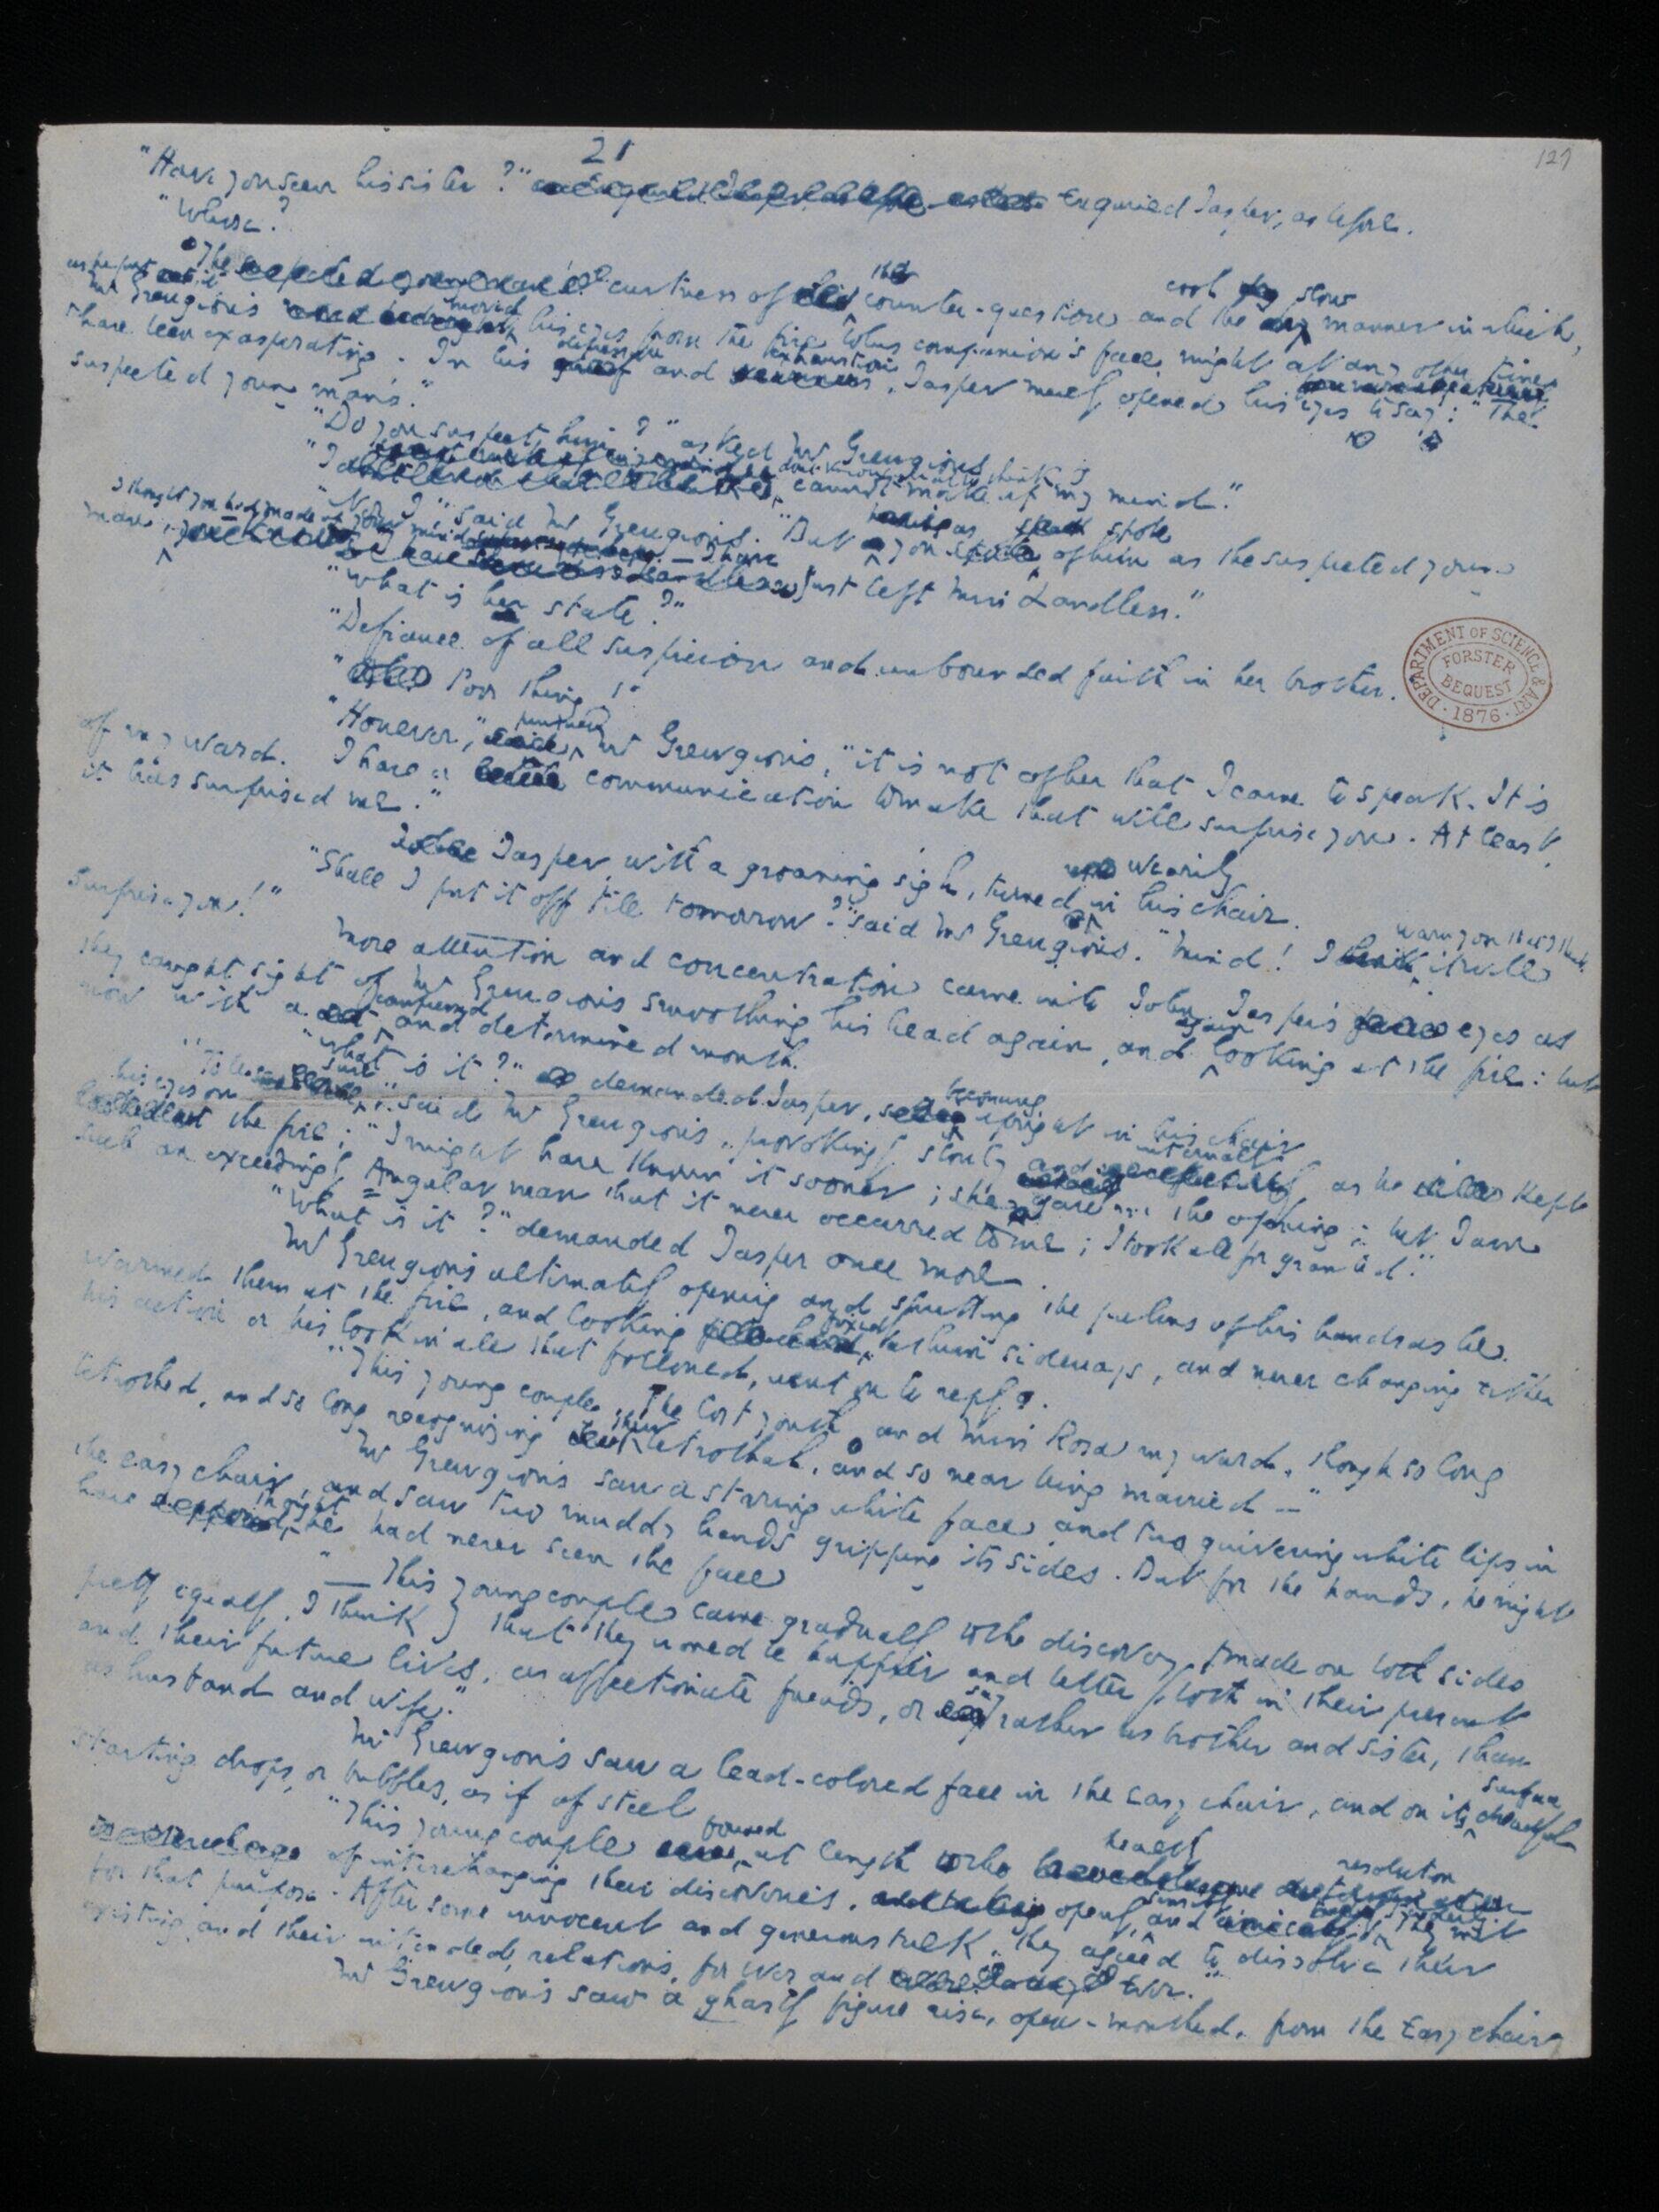 21
127
"Have you seen his sister?" enquired Jasper, as before.
"Whose?"
The curtness of the counter-question, and the cool slow manner in which,
as he put it, Mr Grewgious moved his eyes from the fire to his companion's face, might at any other time
have been exasperating. In his depression and exhaustion, Jasper merely opened his eyes to say: "The
suspected young man's."
"Do you suspect him?" asked Mr Grewgious.
"I don't know what to think. I cannot make up my mind."
"Nor I," said Mr Grewgious. "But as you spoke of him as the suspected young
man, I thought you had made up your mind. — I have just left Miss Landless."
"What is her state?"
"Defiance of all suspicion and unbounded faith in her brother.
"Poor thing!"
"However," pursued Mr Grewgious, "it is not of her that I came to speak. It is
of my ward. I have a communication to make that will surprise you. At least,
it has surprised me."
Jasper, with a groaning sigh, turned wearily in his chair.
"Shall I put it off till tomorrow?" said Mr Grewgious. "Mind! I warn you that I think it will
surprise you!"
More attention and concentration came into John Jasper's eyes as
they caught sight of Mr Grewgious smoothing his head again, and again looking at the fire: but
now with a compressed and determined mouth.
"What is it?" demanded Jasper, becoming upright in his chair
"To be sure," said Mr Grewgious, provokingly slowly and internally, as he kept
his eyes on the fire; "I might have known it sooner; she gave me the opening; but I am
such an exceedingly Angular man that it never occurred to me; I took all for granted."
"What is it?" demanded Jasper once more.
Mr Grewgious alternately opening and shutting the palms of his hands as he
warmed them at the fire, and looking fixedly at him sideways, and never changing either
his action or his look in all that followed, went on to reply.
"This young couple, the lost youth and Miss Rosa my ward, though so long
betrothed, and so long recognizing their betrothal, and so near being married —"
Mr Grewgious saw a staring white face and two quivering white lips in
the easy chair, and saw two muddy hands gripping its sides. But for the hands, he might
have thought he had never seen the face
"— This young couple came gradually to the discovery, (made on both sides
pretty equally, I think) that they would be happier and better, both in their present
and their future lives, as affectionate friends, or say rather as brother and sister, than
as husband and wife."
Mr Grewgious saw a lead-colored face in the easy chair, and on its surface dreadful
starting drops, or bubbles, as if of steel
"This young couple formed at length the healthy resolution
of interchanging their discoveries, openly, sensibly, and tenderly. They met
for that purpose. After some innocent and generous talk, they agreed to dissolve their
existing, and their intended, relations, for ever and ever."
Mr Grewgious saw a ghastly figure rise, open-mouthed, from the Easy chair,
DEPARTMENT OF SCIENCE & ART
FORSTER BEQUEST
1876